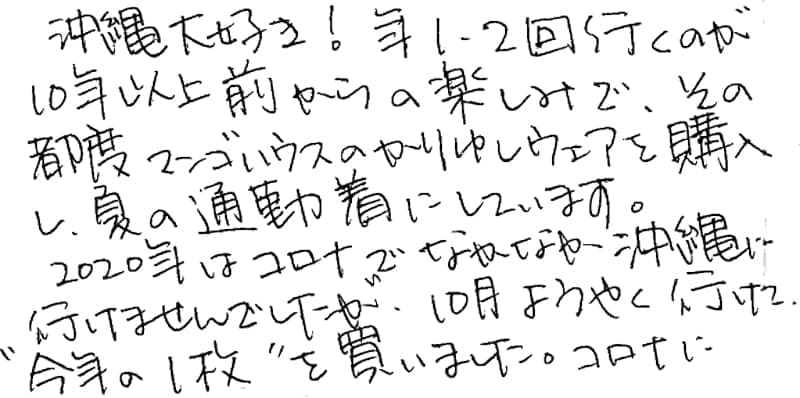 沖縄大好き！年1-2回行くのが
10年以上前からの楽しみで、その
都度マンゴハウスのかりゆしウェアを購入
し、夏の通勤着にしています。
2020年はコロナでなかなか沖縄に
行けませんでしたが、10月ようやく行けて、
"今年の1枚"を買いました。コロナに